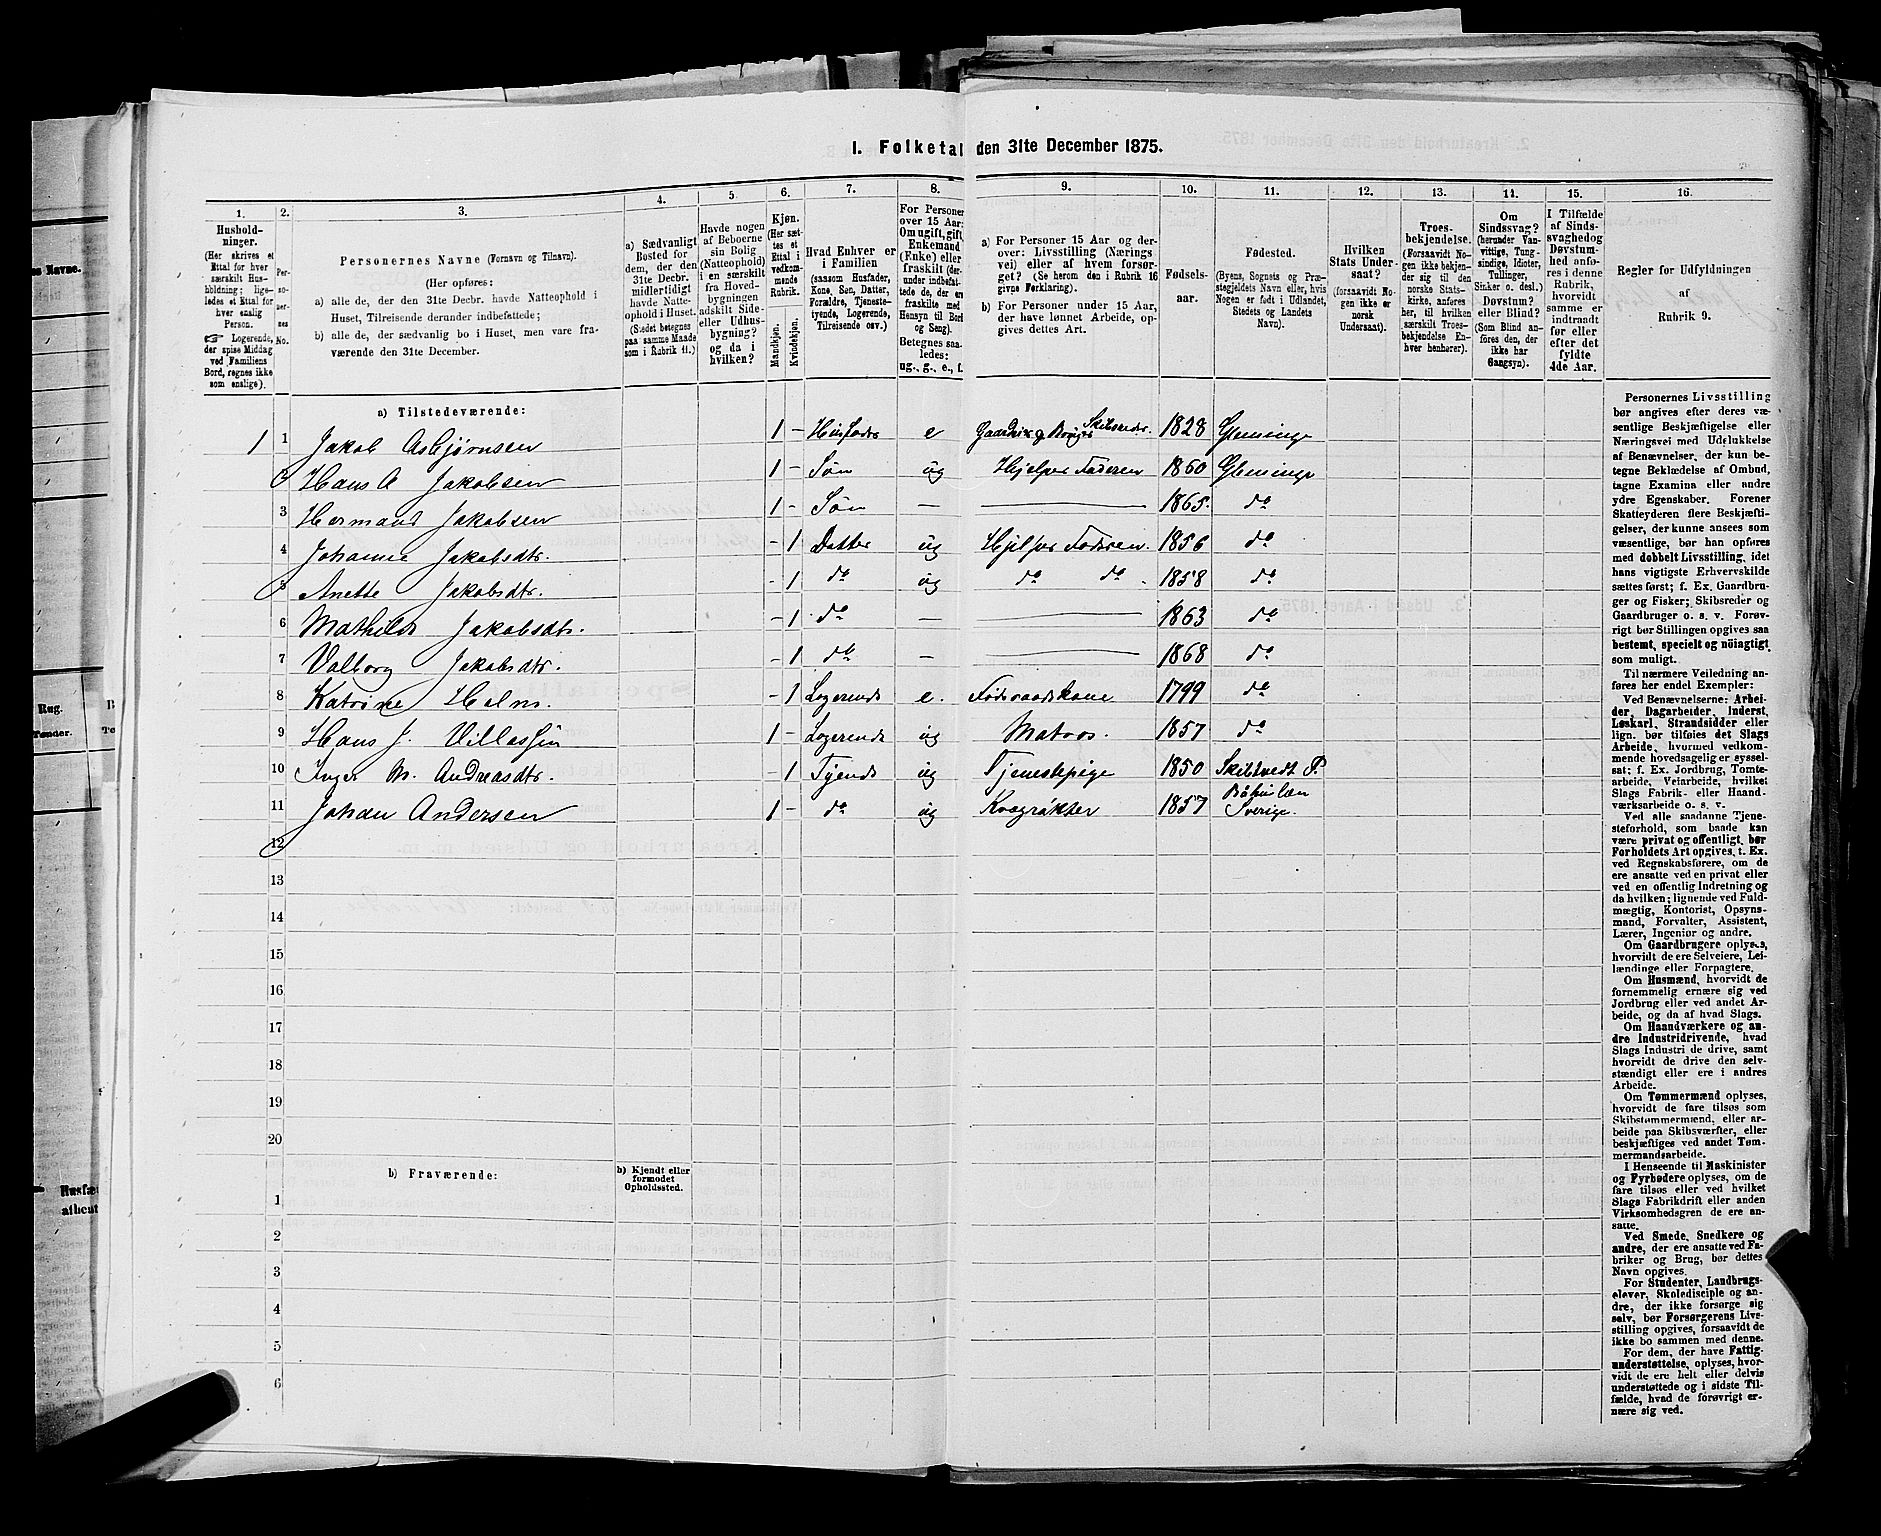 1. Folketal den 31te December 1875.
1. 2. 3. 4. 5. 6. 7. 8. 9. 10. 11. 12. 13. 14. 15. 16.
Hushold-
ninger.
(Her skrives et
Ettal for hver
særskilt Hus-
holdning; lige-
ledes et Ettal for
hver enslig
Person.
☞ Logerende,
der spise Middag
ved Familiens
Bord, regnes ikke
som enslige).
Per-
so-
ner-
nes
No.
Personernes Navne (Fornavn og Tilnavn).
(Her opføres:
a) alle de, der den 31te Decbr. havde Natteophold i
Huset, Tilreisende derunder indbefattede;
b) alle de, der sædvanlig bo i Huset, men vare fra-
værende den 31te December.
a) Sædvanligt
Bosted for
dem, der den
31te Decbr.
midlertidigt
havde Natte-
ophold i Huset.
(Stedet betegnes
paa samme Maade
som i Rubrik 11.)
Havde nogen
af Beboerne
sin Bolig
(Natteophold)
i en særskilt
fra Hoved-
bygningen
adskilt Side-
eller Udhus-
bygning?
og da i
hvilken?
Kjøn.
(Her sæt-
tes et
Ettal i
vedkom-
mende
Rubrik.)
Mandkjøn.
Kvindekjøn.
Hvad Enhver er
i Familien
(saasom Husfader,
Kone, Søn, Datter,
Forældre, Tjeneste-
tyende, Logerende,
Tilreisende osv.)
For Personer
over 15 Aar:
Om ugift, gift,
Enkemand
(Enke) eller
fraskilt (der-
under indbefat-
tede de, der ere
fraskilte med
Hensyn til Bord
og Seng).
Betegnes saa-
ledes:
ug., g., e., f.
a) For Personer 15 Aar og der-
over: Livsstilling (Nærings-
vei) eller af hvem forsør-
get? (Se herom den i Rubrik 16
givne Forklaring).
b) For Personer under 15 Aar,
der have lønnet Arbeide, op-
gives dettes Art.
Fødsels-
aar.
Fødested.
(Byens, Sognets og Præ-
stegjeldets Navn eller, hvis
Nogen er født i Udlandet,
Stedets og Landets
Navn).
Hvilken
Stats Under-
saat?
(forsaavidt No-
gen ikke er
norsk
Undersaat).
Troes-
bekjendelse.
(Forsaavidt No-
gen ikke bekjen-
der sig til den
norske Stats-
kirke, anføres
her, til hvilken
særskilt Troes-
bekjendelse En-
hver henhører).
Om
Sindssvag?
(herunder Van-
vittige, Tung-
sindige, Idioter,
Tullinger,
Sinker o. desl.)
Døvstum?
eller Blind?
(Som Blind an-
føres den, der
ikke har
Gangsyn).
I Tilfælde
af Sinds-
svaghed og
Døvstum-
hed anfø-
res i denne
Rubrik,
hvorvidt
samme er
indtraadt
før eller
efter det
fyldte
4de Aar.
Regler for Udfyldningen
af
Rubrik 9.
a) Tilstedeværende:
1 1 Jakob Asbjørnsen 1 - Husfader e Gaardbr. og Skibsreder. 1828 Glemminge
2 Hans A Jakobsen 1 - Søn ug Hjelper Faderen 1860 Glemminge
3 Hermand Jakobsen 1 - Søn — — 1865. do
4 Johanne Jakobsdtr. - 1 Datter ug Hjelper Faderen. 1856 do
5 Anette Jakobsdtr. - 1 do ug do do 1858 do
6 Mathilde Jakobsdtr. - 1 do — — 1863 do
7 Valborg Jakobsdtr. - 1 do — — 1868 do
8 Katrine Holm. - 1 Logerende e. Føderaadskone 1799 do
9 Hans J. Villassen 1 - Logerende ug Matros. 1857 do
10 Inger M. Andreasdtr. - 1 Tyende ug Tjenestepige 1850 Skibtvedt P.
11 Johan Andersen 1 - do ug Kvægrøkter 1857 Båhuslen Sverige.
12
13
14
15
16
17
18
19
20
b) Fraværende:
b) Kjendt eller
formodet
Opholdssted.
1
2
3
4
5
6
Personernes Livsstilling
bør angives efter deres væ-
sentlige Beskjæftigelse eller
Næringsvei med Udelukkelse
af Benævnelser, der kun be-
tegne Beklædelse af Ombud,
tagne Examina eller andre
ydre Egenskaber. Forener
Skatteyderen flere Beskjæfti-
gelser, der kunne ansees som
væsentlige, bør han opføres
med dobbelt Livsstilling, idet
hans vigtigste Erhvervskilde
sættes først; f. Ex. Gaardbru-
ger og Fisker; Skibsreder og
Gaardbruger o. s. v. Forøv-
rigt bør Stillingen opgives saa
bestemt, specielt og nöiagtigt
som muligt.
Til nærmere Veiledning an-
føres her endel Exempler:
Ved Benævnelserne: Arbei-
der, Dagarbeider, Inderst,
Løskarl, Strandsidder eller
lign. bør tilføies det Slags
Arbeide, hvormed vedkom-
mende hovedsagelig er syssel-
sat; f. Ex. Jordbrug, Tomte-
arbeide, Veiarbeide, hvilket
Slags Fabrik- eller Haand-
værksarbeide o. s. v.
Ved alle saadanne Tjene-
steforhold, som baade kan
være privat og offentligt, bør
Forholdets Art opgives, t. Ex.
ved Regnskabsførere, om de
ere ansatte ved en privat eller
ved en offentlig Indretning og
da hvilken; lignende ved Fuld-
mægtig, Kontorist, Opsyns-
mand, Forvalter, Assistent,
Lærer, Ingeniør og andre.
Om Gaardbrugere oplyses,
hvorvidt de ere Selveiere, Lei-
lændinge eller Forpagtere.
Om Husmænd, hvorvidt de
fornemmelig ernære sig ved
Jordbrug eller ved andet Ar-
beide, og da af hvad Slags.
Om Haandværkere og an-
dre Industridrivende, hvad
Slags Industri de drive, samt
hvorvidt de drive den selv-
stændigt eller ere i andres
Arbeide.
Om Tømmermænd oplyses,
hvorvidt de fare tilsøs som
Skibstømmermænd, eller ar-
beide paa Skibsværfter, eller
beskjæftiges ved andet Tøm-
mermandsarbeide.
I Henseende til Maskinister
og Fyrbødere oplyses, om de
fare tilsøs eller ved hvilket
Slags Fabrikdrift eller anden
Virksomhedsgren de ere an-
satte.
Ved Smede, Snedkere og
andre, der ere ansatte ved Fa-
briker og Brug, bør dettes
Navn opgives.
For Studenter, Landbrugs-
elever, Skoledisciple og an-
dre, der ikke forsørge sig
selv, bør Forsørgerens Livs-
stilling opgives, forsaavidt de
ikke bo sammen med denne.
For dem, der have Fattig-
understøttelse, oplyses, hvor-
vidt de ere helt eller delvis
understøttede og i sidste Til-
fælde, hvad de forøvrigt er-
nære sig ved.